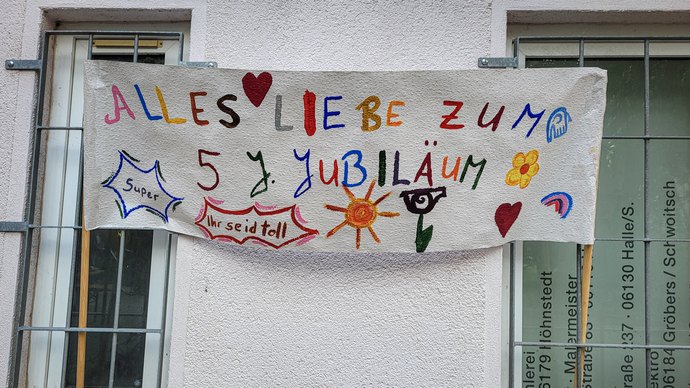 ALLES LIEBE ZUM
5 J. JUBILÄUM
Super
Ihr seid toll
06179 Höhnstedt
Malermeister
237 · 06130 Halle/S.
06184 Gröbers / Schwoitsch